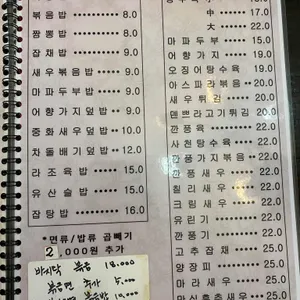 볶음밥 8.0
짬뽕밥 8.0
잡채밥 8.0
새우볶음밥 8.0
마파두부밥 8.0
어향가지덮밥 9.0
중화새우덮밥 9.0
차돌배기덮밥 12.0
라조육밥 15.0
유산슬밥 15.0
잡탕밥 16.0
*면류/밥류 곱빼기
2,000원 추가
바지락 볶음 18,000
볶음면 추가 5,000
볶음밥 10,000
中 17.0
大 22.0
마파두부 15.0
어향가지 19.0
오징어탕수육 19.0
아스파라볶음 20.0
새우튀김 20.0
덴쁘라고기튀김 20.0
깐풍육 22.0
사천탕수육 22.0
깐풍가지볶음 22.0
깐풍새우 22.0
칠리새우 22.0
크림새우 22.0
유린기 22.0
깐풍기 22.0
고추잡채 25.0
양장피 25.0
마라새우 25.0